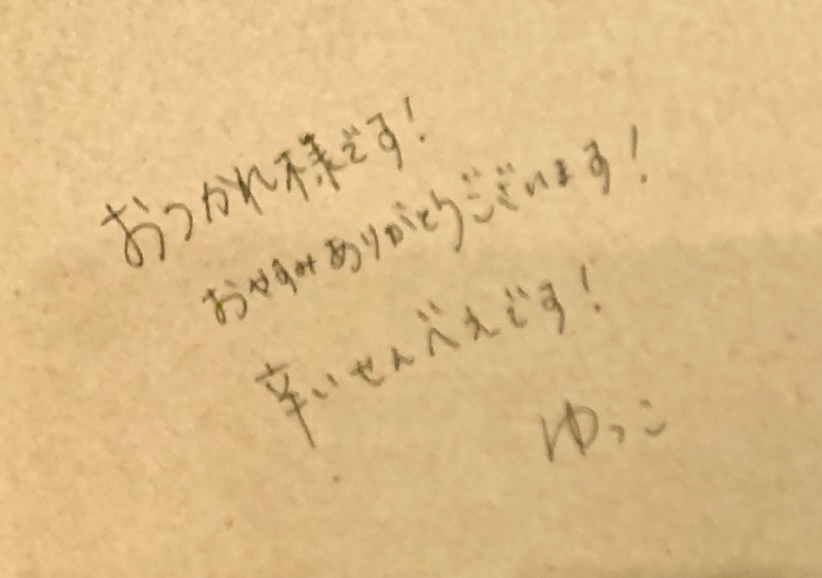 おつかれ様です！
おやすみありがとうございます！
辛いせんべえです！
ゆっこ